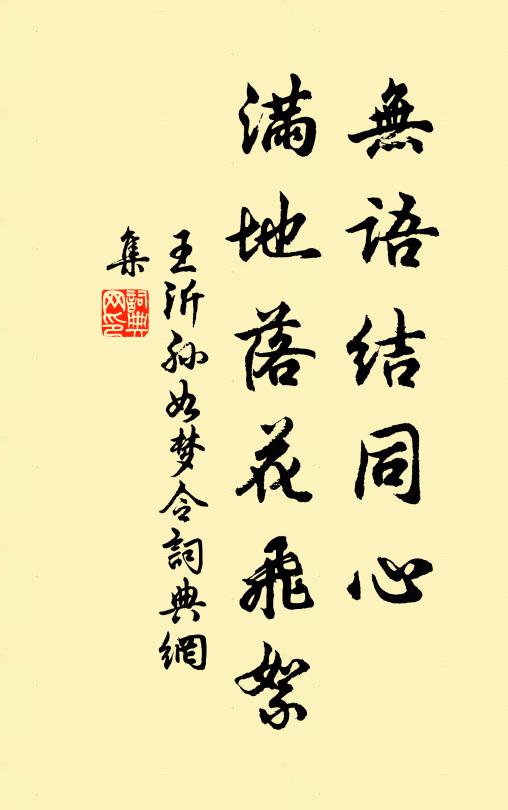 無語結同心
滿地落花飛絮
王沂孙如梦令詞典網
集
詞典
网印